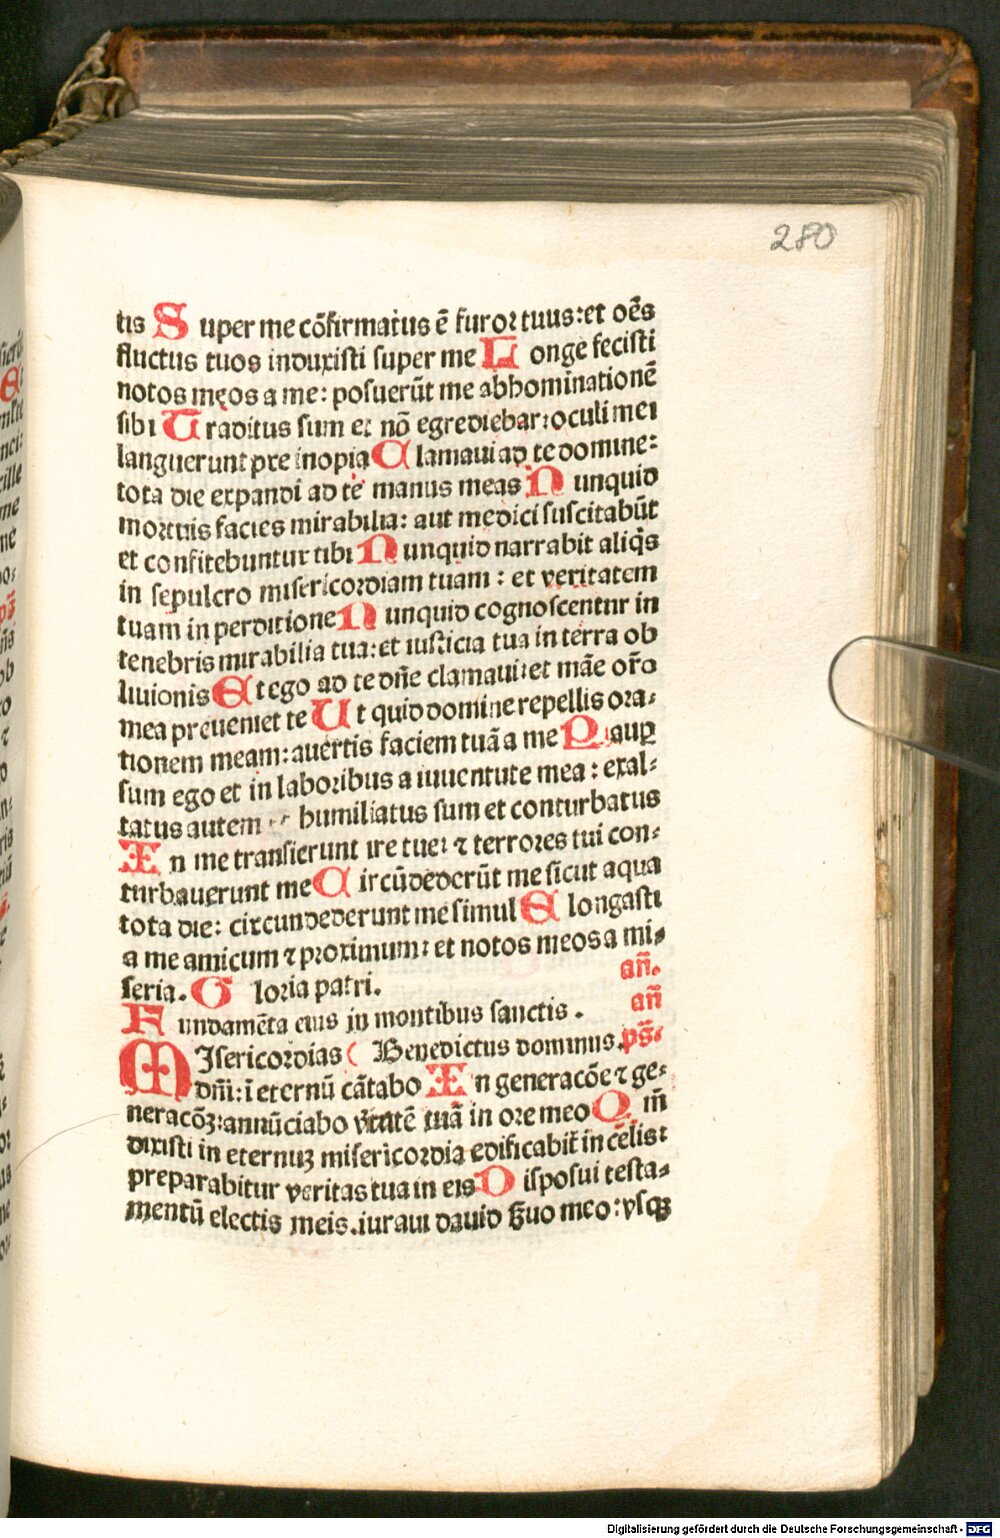 280
tis Super me cōfirmatus ē furor tuus: et oēs
fluctus tuos induxisti super me Longe fecisti
notos meos a me: posuerūt me abhominationē
sibi Traditus sum et nō egrediebar: oculi mei
languerunt pre inopia Clamaui ad te domine:
tota die expandi ad te manus meas Nunquid
mortuis facies mirabilia: aut medici suscitabūt
et confitebuntur tibi Nunquid narrabit aliq̄s
in sepulcro misericordiam tuam: et veritatem
tuam in perditione Nunquid cognoscentur in
tenebris mirabilia tua: et iusticia tua in terra ob
liuionis Et ego ad te dn̄e clamaui: et māe or̄o
mea preueniet te Ut quid domine repellis ora⸗
tionem meam: auertis faciem tuā a me Paup
sum ego et in laboribus a iuuentute mea: exal⸗
tatus autem humiliatus sum et conturbatus
In me transierunt ire tue: ⁊ terrores tui con⸗
turbauerunt me Circūdederūt me sicut aqua
tota die: circundederunt me simul Elongasti
a me amicum ⁊ proximum: et notos meos a mi⸗
seria. Gloria patri. an̄.
Fundamēta eius in montibus sanctis. an̄
Misericordias Benedictus dominus. ps̄.
dn̄i: ī eternū cātabo In generacōe ⁊ ge⸗
neracōꝫ: annūciabo v̄itatē tuā in ore meo Qm̄
dixisti in eternuꝫ misericordia edificabit̄ in celis:
preparabitur veritas tua in eis Disposui testa⸗
mentū electis meis. iuraui dauid s̄uo meo: vsqꝫ
Digitalisierung gefördert durch die Deutsche Forschungsgemeinschaft - DFG